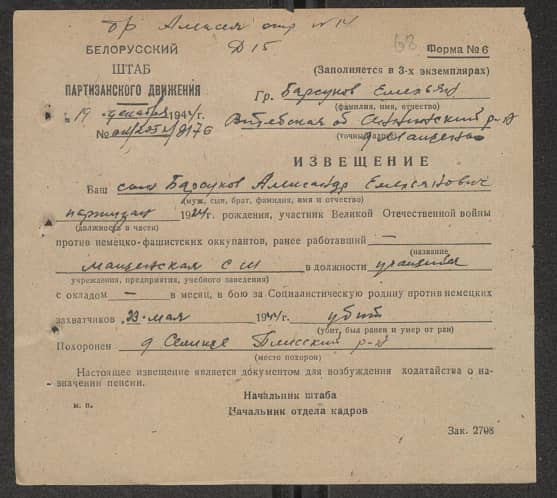 бр Алексея отр № 14
Д 15
68
БЕЛОРУССКИЙ
ШТАБ
ПАРТИЗАНСКОГО ДВИЖЕНИЯ
„19 декабря 1944г.
№
Форма № 6
(Заполняется в 3-х экземплярах)
Гр. Барсуков Емельян
(фамилия, имя, отчество)
Витебская об Сеннинский р-н
(точный адрес)
ИЗВЕЩЕНИЕ
Ваш сын Барсуков Александр Емельянович
(муж, сын, брат, фамилия, имя и отчество)
партизан 1924г. рождения, участник Великой Отечественной войны
(должность в части)
против немецко-фашистских оккупантов, ранее работавший —
(название
СШ в должности учащийся
учреждения, предприятия, учебного заведения)
с окладом — в месяц, в бою за Социалистическую родину против немецких
захватчиков 23 мая 1944г. убит
(убит, был ранен и умер от ран)
Похоронен д р-н
(место похорон)
Настоящее извещение является документом для возбуждения ходатайства о на-
значении пенсии.
м. п.
Начальник штаба
Начальник отдела кадров
Зак. 2708